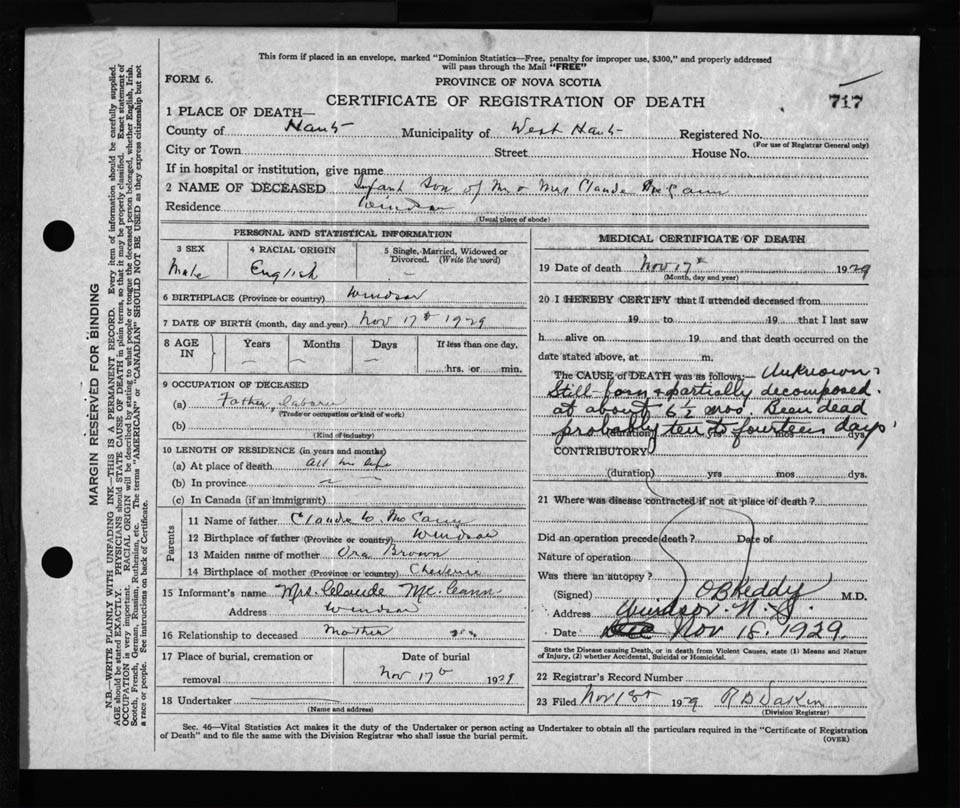 This form if placed in an envelope, marked "Dominion Statistics—Free, penalty for improper use, $300," and properly addressed
will pass through the Mail "FREE"
FORM 6.
PROVINCE OF NOVA SCOTIA
CERTIFICATE OF REGISTRATION OF DEATH
717
1 PLACE OF DEATH—
County of Hants Municipality of West Hants Registered No.
(For use of Registrar General only)
City or Town Street House No.
If in hospital or institution, give name
2 NAME OF DECEASED Infant Son of Mr & Mrs Claude McCann
Residence Windsor
(Usual place of abode)
PERSONAL AND STATISTICAL INFORMATION
3 SEX Male
4 RACIAL ORIGIN English
5 Single, Married, Widowed or Divorced. (Write the word) —
6 BIRTHPLACE (Province or country) Windsor
7 DATE OF BIRTH (month, day and year) Nov 17th 1929
8 AGE IN Years Months Days If less than one day,
hrs. or min.
9 OCCUPATION OF DECEASED
(a) Father, Laborer
(Trade or occupation or kind of work)
(b)
(Kind of industry)
10 LENGTH OF RESIDENCE (in years and months)
(a) At place of death All his life
(b) In province
(c) In Canada (if an immigrant)
Parents
11 Name of father Claude McCann
12 Birthplace of father (Province or country) Windsor
13 Maiden name of mother Ora Brown
14 Birthplace of mother (Province or country)
15 Informant's name Mrs. Claude McCann
Address Windsor
16 Relationship to deceased Mother
17 Place of burial, cremation or removal
Date of burial
Nov 17th 1929
18 Undertaker
(Name and address)
MEDICAL CERTIFICATE OF DEATH
19 Date of death Nov 17th 1929
(Month, day and year)
20 I HEREBY CERTIFY that I attended deceased from
19 to 19 that I last saw
h alive on 19 and that death occurred on the
date stated above, at m.
The CAUSE of DEATH was as follows:— Unknown.
Still-born & partially decomposed.
at about 6½ mos. Been dead
probably ten to fourteen days
(duration) yrs mos dys.
CONTRIBUTORY
(duration) yrs mos dys.
21 Where was disease contracted if not at place of death?
Did an operation precede death? Date of
Nature of operation
Was there an autopsy?
(Signed) O B Keddy M.D.
Address Windsor. N.S.
Date Nov 18. 1929.
State the Disease causing Death, or in death from Violent Causes, state (1) Means and Nature
of Injury, (2) whether Accidental, Suicidal or Homicidal.
22 Registrar's Record Number
23 Filed Nov 18th 1929
(Division Registrar)
Sec. 46—Vital Statistics Act makes it the duty of the Undertaker or person acting as Undertaker to obtain all the particulars required in the "Certificate of Registration
of Death" and to file the same with the Division Registrar who shall issue the burial permit.
(OVER)
MARGIN RESERVED FOR BINDING
N.B.—WRITE PLAINLY WITH UNFADING INK—THIS IS A PERMANENT RECORD. Every item of information should be carefully supplied.
AGE should be stated EXACTLY. PHYSICIANS should STATE CAUSE OF DEATH in plain terms, so that it may be properly classified. Exact statement of
OCCUPATION is very important. RACIAL ORIGIN will be described by stating to what people or tongue the deceased person belonged, whether English, Irish,
Scotch, French, German, Russian, Ruthenian, etc. The terms "AMERICAN" or "CANADIAN" SHOULD NOT BE USED as they express citizenship but not
a race or people. See instructions on back of Certificate.